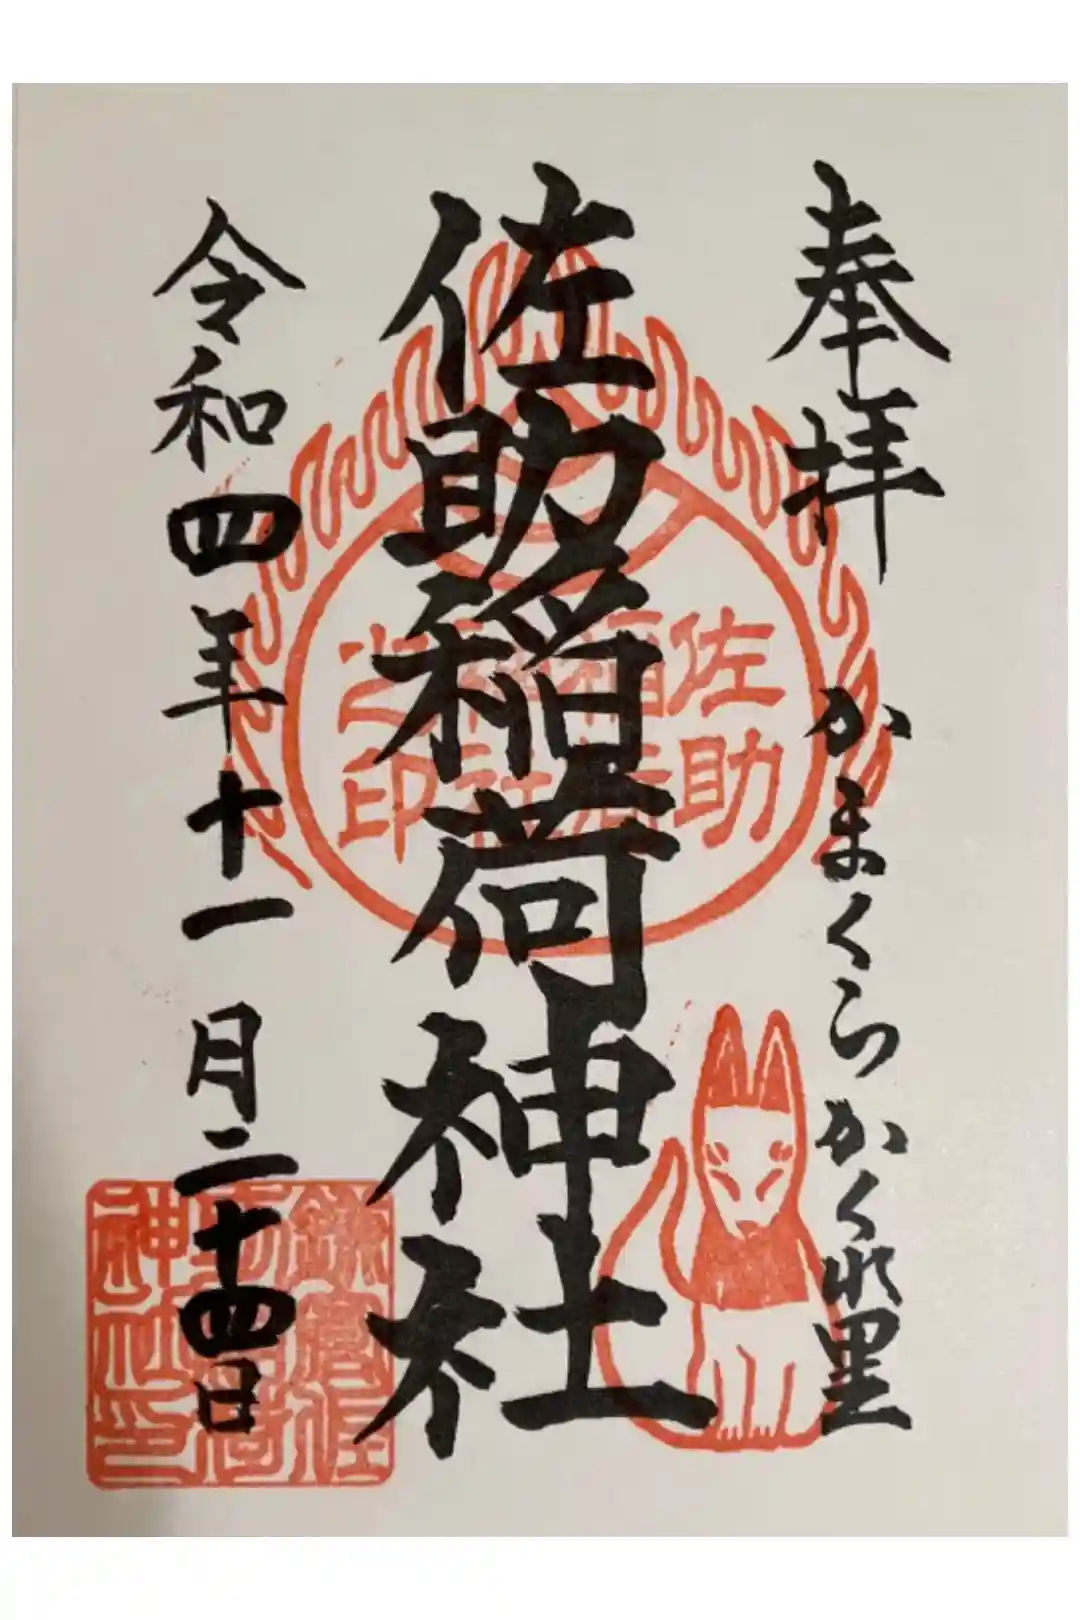 奉拝 かまくらかくれ里
佐助稲荷神社
令和四年十一月二十四日
佐助
稲荷
神社
之印